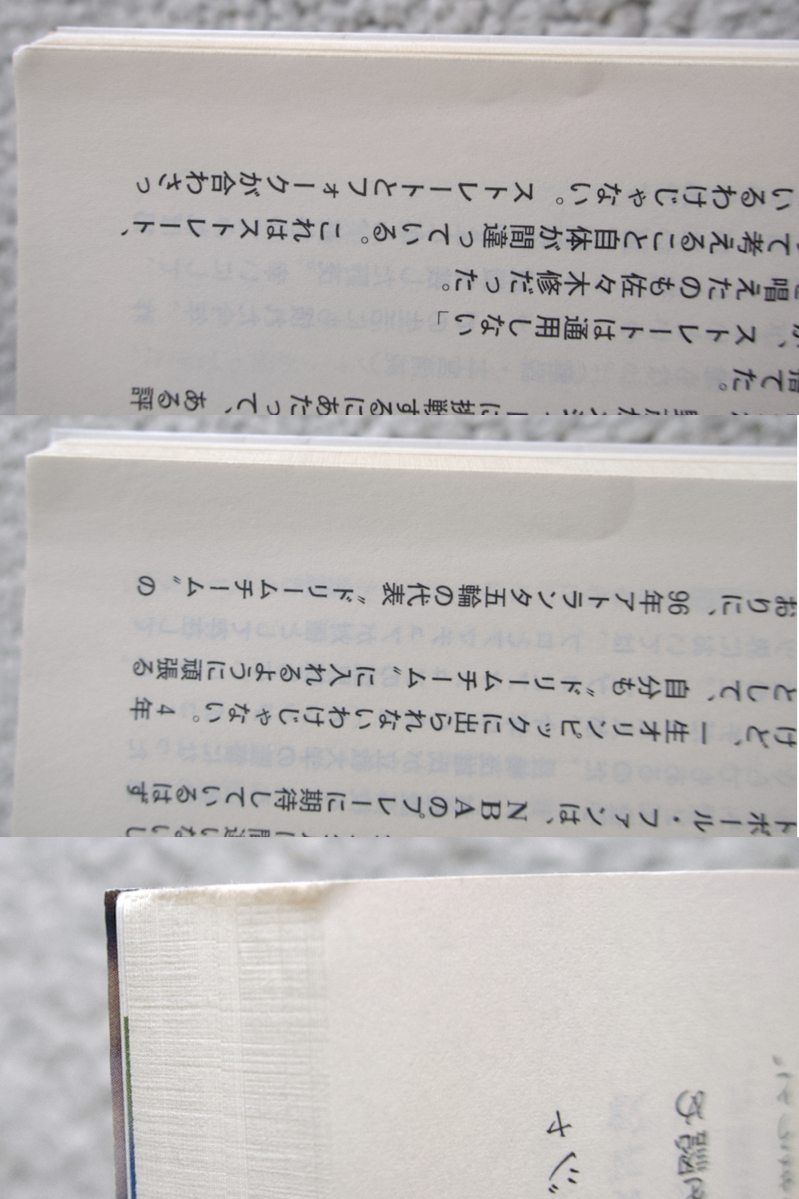 に挑戦するにあたって、ある評
捨てた。
、ストレートは通用しない」
唱えたのも佐々木修だった。
って考えること自体が間違っている。これはストレート、
いるわけじゃない。ストレートとフォークが合わさっ
間違いないし
トボール・ファンは、NBAのプレーに期待しているはず
けど、一生オリンピックに出られないわけじゃない。4年
として、自分も〝ドリームチーム〟に入れるように頑張る
おりに、96年アトランタ五輪の代表〝ドリームチーム〟の